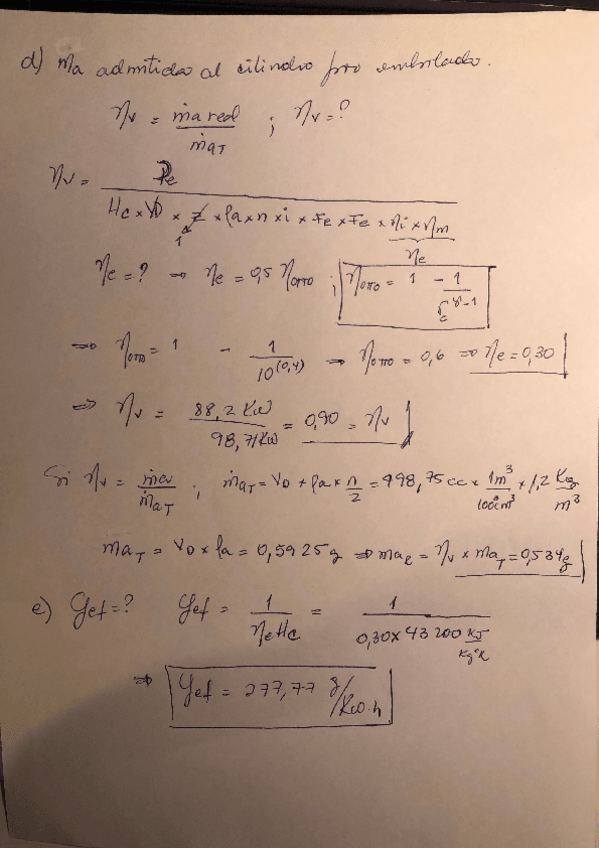 d) ma admitida al cilindro por embolada.
ηv = ma real / maT ; ηv = ?
ηv = Pe / (Hc × VD × z × ρa × n × i × FR × Fe × ηi × ηm)
1 ηe
ηe = ? ⇒ ηe = 0,5 ηOTTO ; ηOTTO = 1 - 1 / rc^(γ-1)
⇒ ηOTTO = 1 - 1 / 10^(0,4) ⇒ ηOTTO = 0,6 ⇒ ηe = 0,30
⇒ ηv = 88,2 Kw / 98,71 Kw = 0,90 = ηv
Si ηv = ma / maT ; maT = VD × ρa × n/2 = 498,75 cc × 1m³ / 100³cm³ × 1,2 Kg / m³
maT = VD × ρa = 0,5925 g ⇒ maR = ηv × maT = 0,534 g
e) gef = ? gef = 1 / ηeHc = 1 / (0,30 × 43 200 KJ / Kg°K)
⇒ gef = 277,77 g/Kw.h